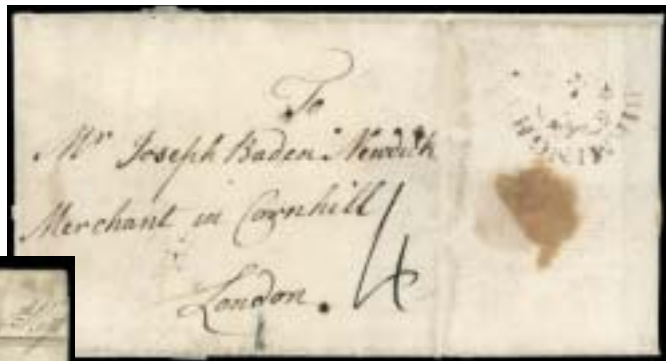 To
Mr Joseph Baden Newdick
Merchant in Cornhill
London. 4